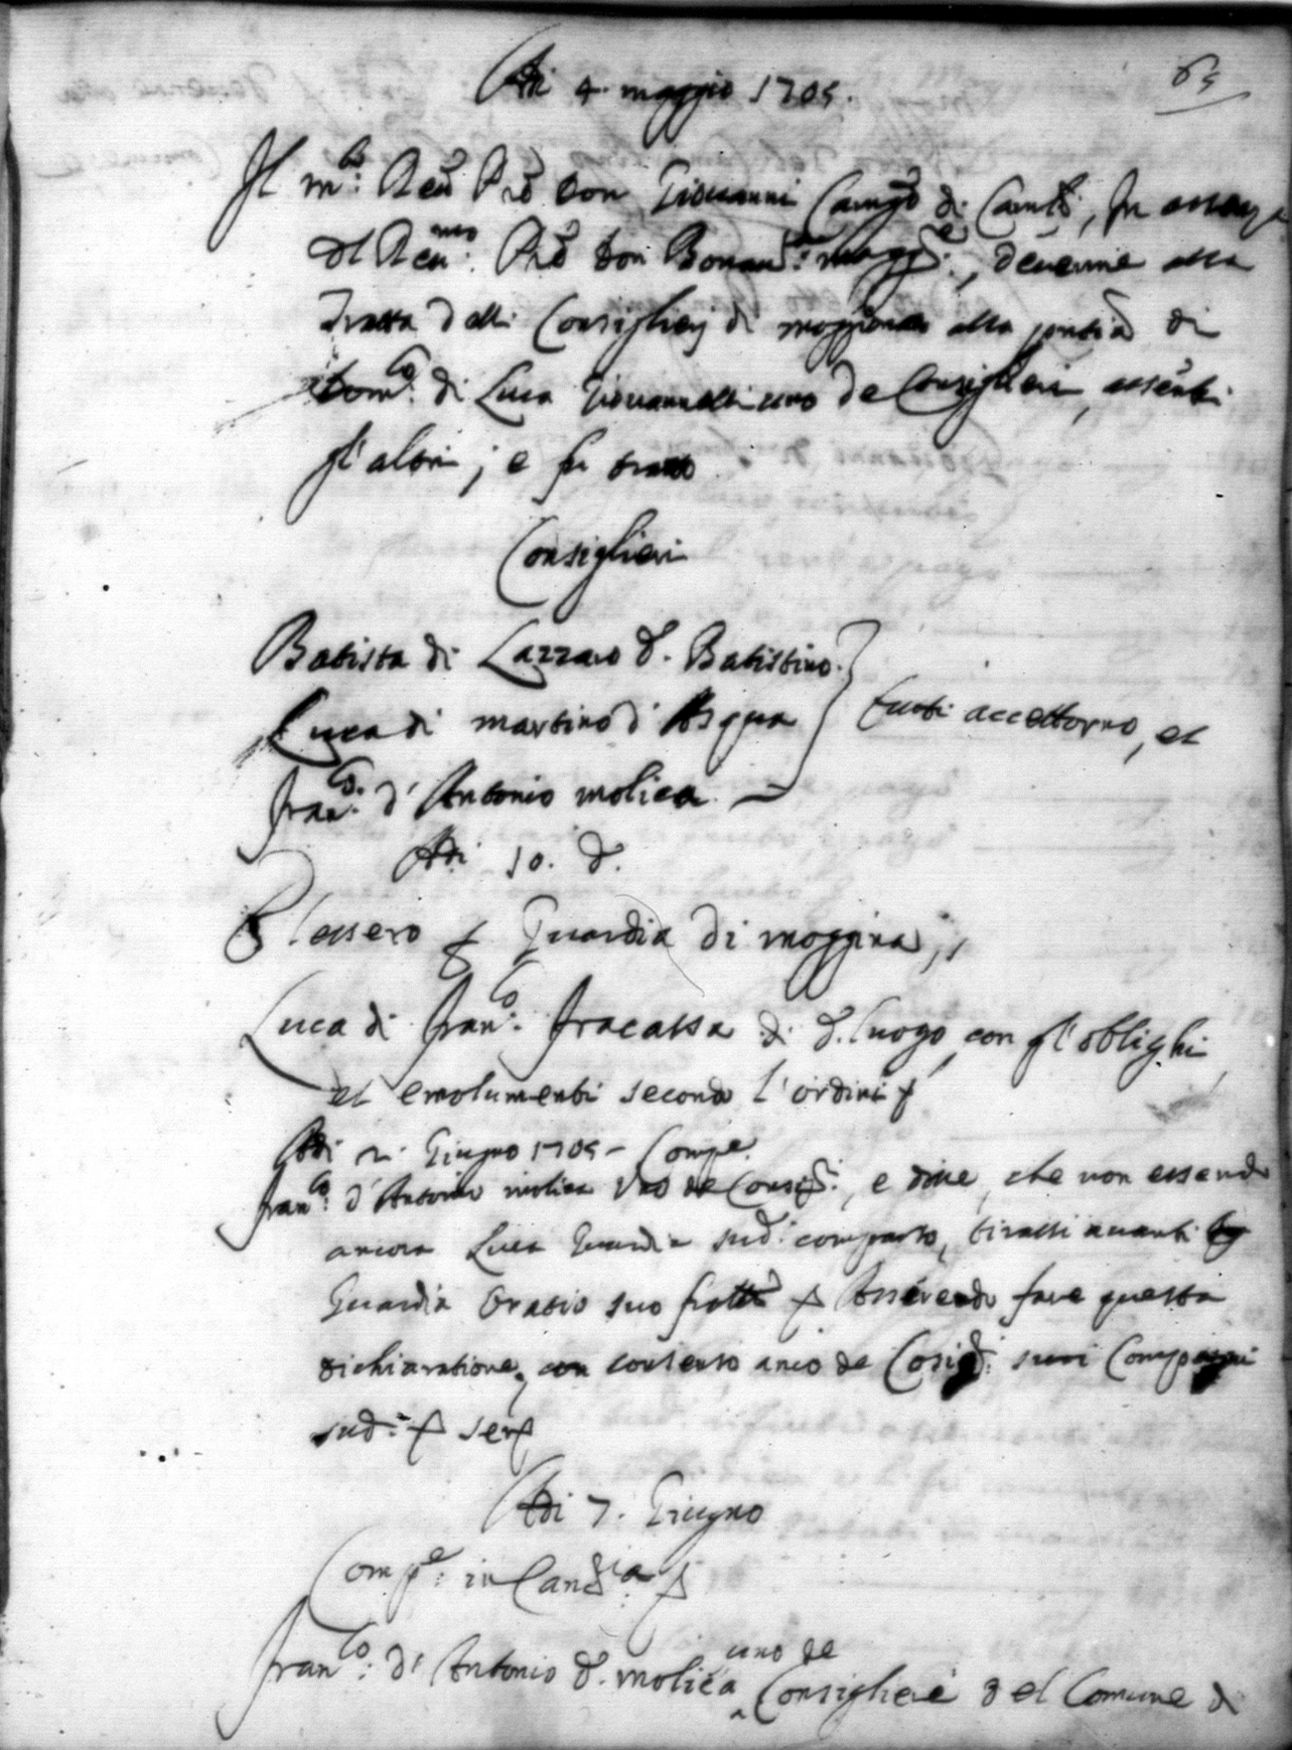 65
Adi 4. maggio 1705.
Il m.to Reu.do Pre Don Giouanni di, In assenza
del Reu.mo Pre Don Bonau.ra magg.re, deuenne alla
Tratta delli Consiglieri di moggiona alla pntia di
Dom.co di Luca Giouannelli uno de Consiglieri, assenti
gl'altri; e fu tratto
Consiglieri
Batista di Lazzaro d. Batistino.
Luca di martino d'
tutti accettorno, et
Fran.co d'Antonio molica
Adi 10. d.
Elessero p Guardia di moggiona,
Luca di Fran.co Fracassa di d. luogo, con gl'oblighi
et emolumenti secondo l'ordini p
Adi 2. Giugno 1705 - Compe.
Fran.co d'Antonio molica Vno de Consig.ri, e disse, che non essendo
ancora Luca Guardia sud.o comparso, tirassi auanti
Guardia Oratio suo fratto p Asserendo fare questa
dichiaratione, con consenso anco de Cosig.ri suoi Compagni
sud.i p ser
Adi 7. Giugno
Comp.e in Canc.ia p
Fran.co d'Antonio d. molica uno de Consiglieri del Comune di